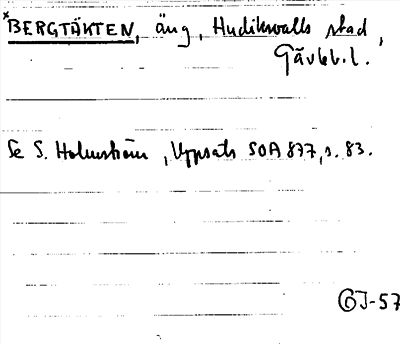 *BERGTÄKTEN, äng, Hudiksvalls stad,
Gävleb. l.
Se S. Holmström, Uppsats SOA 877, s. 83.
GJ-57